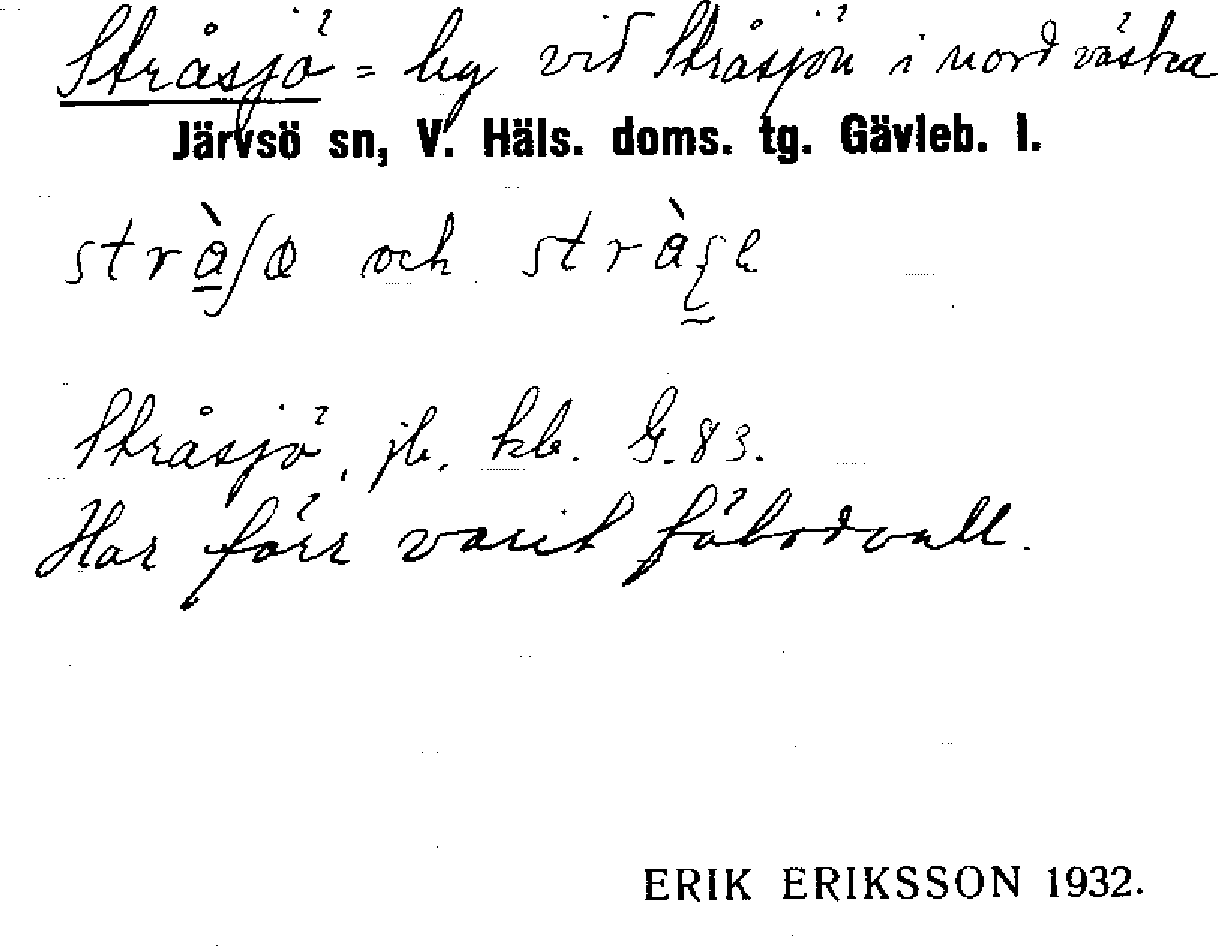 Stråsjö = by vid Stråsjön i nordvästra
Järvsö sn, V. Häls. doms. tg. Gävleb. l.
och
Stråsjö, jb, kb. G. 83.
Har förr varit fäbodvall.
ERIK ERIKSSON 1932.